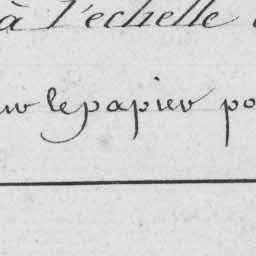 à l'echelle
le papier po